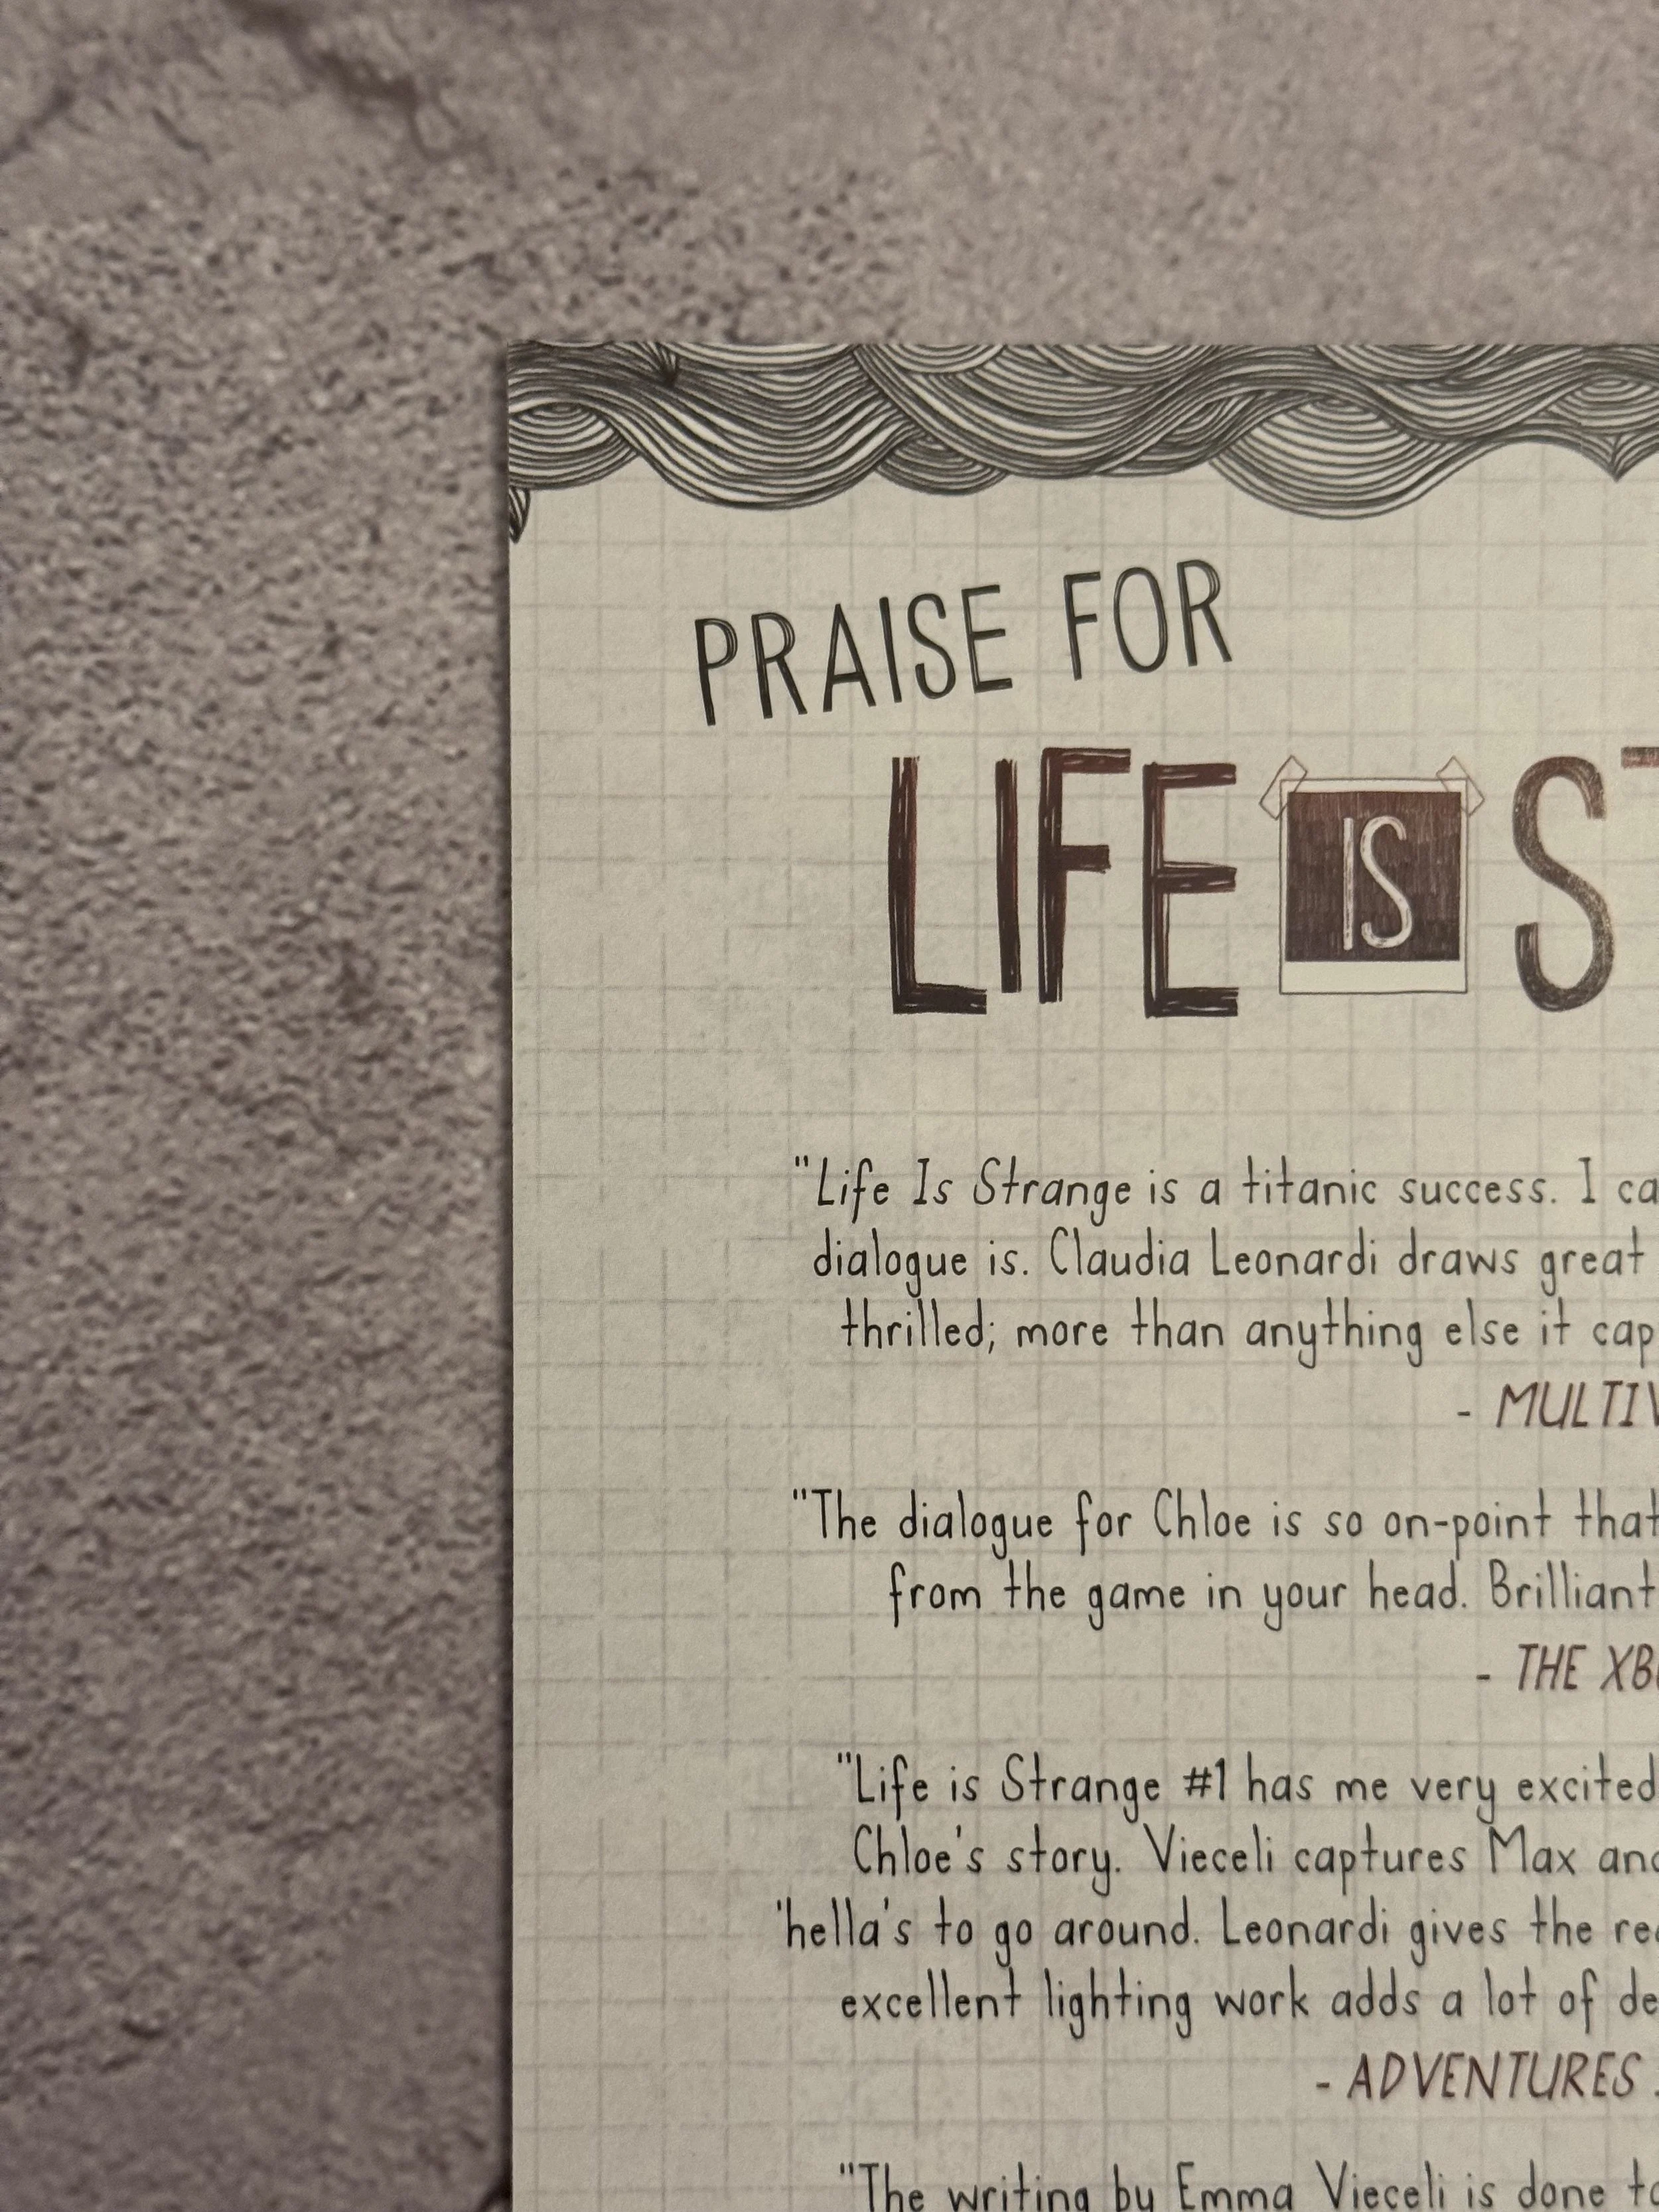 PRAISE FOR
LIFE IS ST
"Life Is Strange is a titanic success. I ca
dialogue is. Claudia Leonardi draws great
thrilled; more than anything else it cap
- MULTIV
"The dialogue for Chloe is so on-point that
from the game in your head. Brilliant
- THE XB
"Life is Strange #1 has me very excited
Chloe's story. Vieceli captures Max and
'hella's to go around. Leonardi gives the re
excellent lighting work adds a lot of de
- ADVENTURES
"The writing by Emma Vieceli is done to